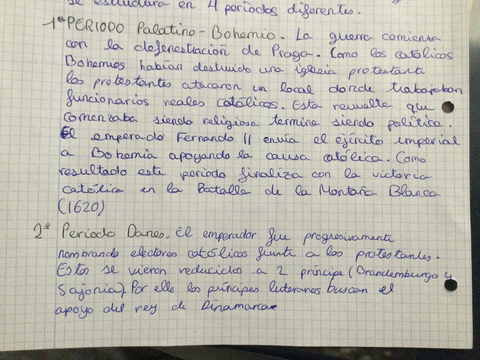 se estructura en 4 periodos diferentes.
-1º PERIODO Palatino-Bohemio. La guerra comienza
con la defenestración de Praga. Como los católicos
Bohemos habían destruido una iglesia protestante
los protestantes atacaron un local donde trabajaban
funcionarios reales católicos. Esta revuelta que
comenzaba siendo religiosa termina siendo política.
El emperado Fernando II envía el ejército imperial
a Bohemia apoyando la causa católica. Como
resultado este periodo finaliza con la victoria
católica en la Batalla de la Montaña Blanca
(1620)
2º Periodo Danes. El emperador fue progresivamente
nombrando electores católicos frente a los protestantes.
Estos se vieron reducidos a 2 príncipe (Brandemburgo y
Sajonia). Por ello los príncipes luteranos buscan el
apoyo del rey de Dinamarca